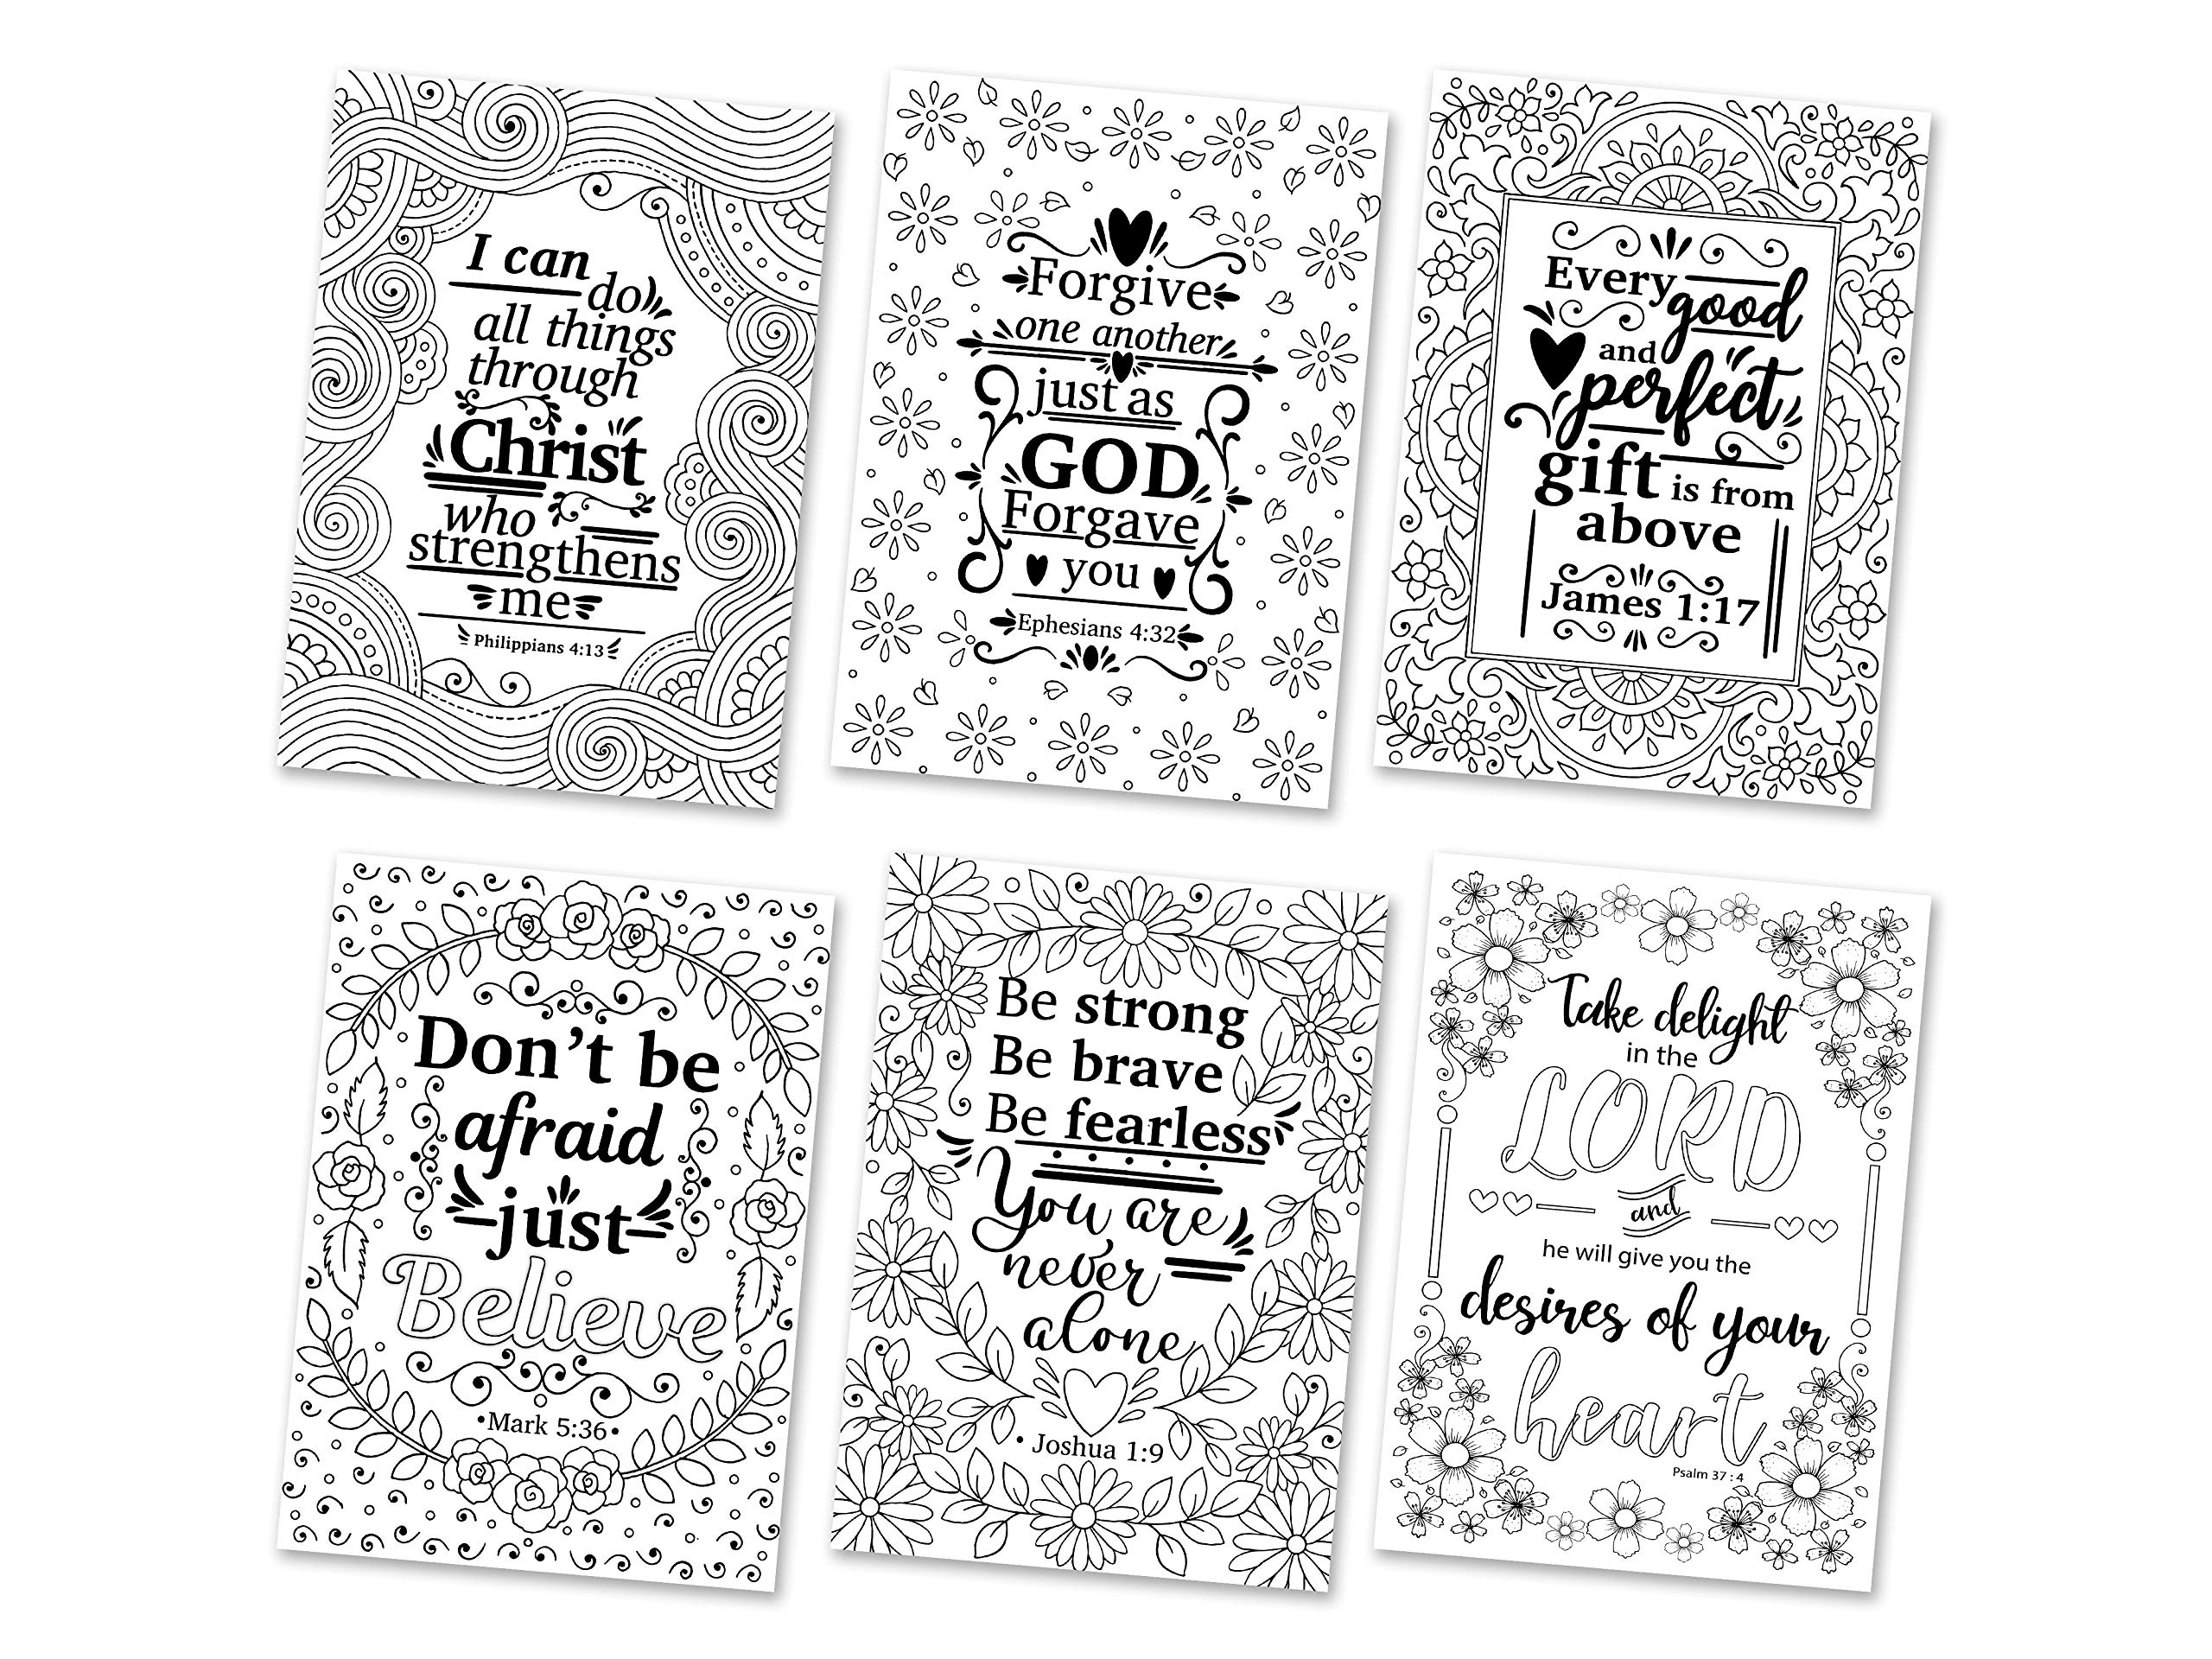 I can
do
all things
through
Christ
who
strengthens
me
Philippians 4:13
Forgive
one another
just as
GOD
Forgave
you
Ephesians 4:32
Every
good
and
perfect
gift is from
above
James 1:17
Don't be
afraid
just
Believe
•Mark 5:36•
Be strong
Be brave
Be fearless
You are
never
alone
• Joshua 1:9
Take delight
in the
LORD
and
he will give you the
desires of your
heart
Psalm 37 : 4